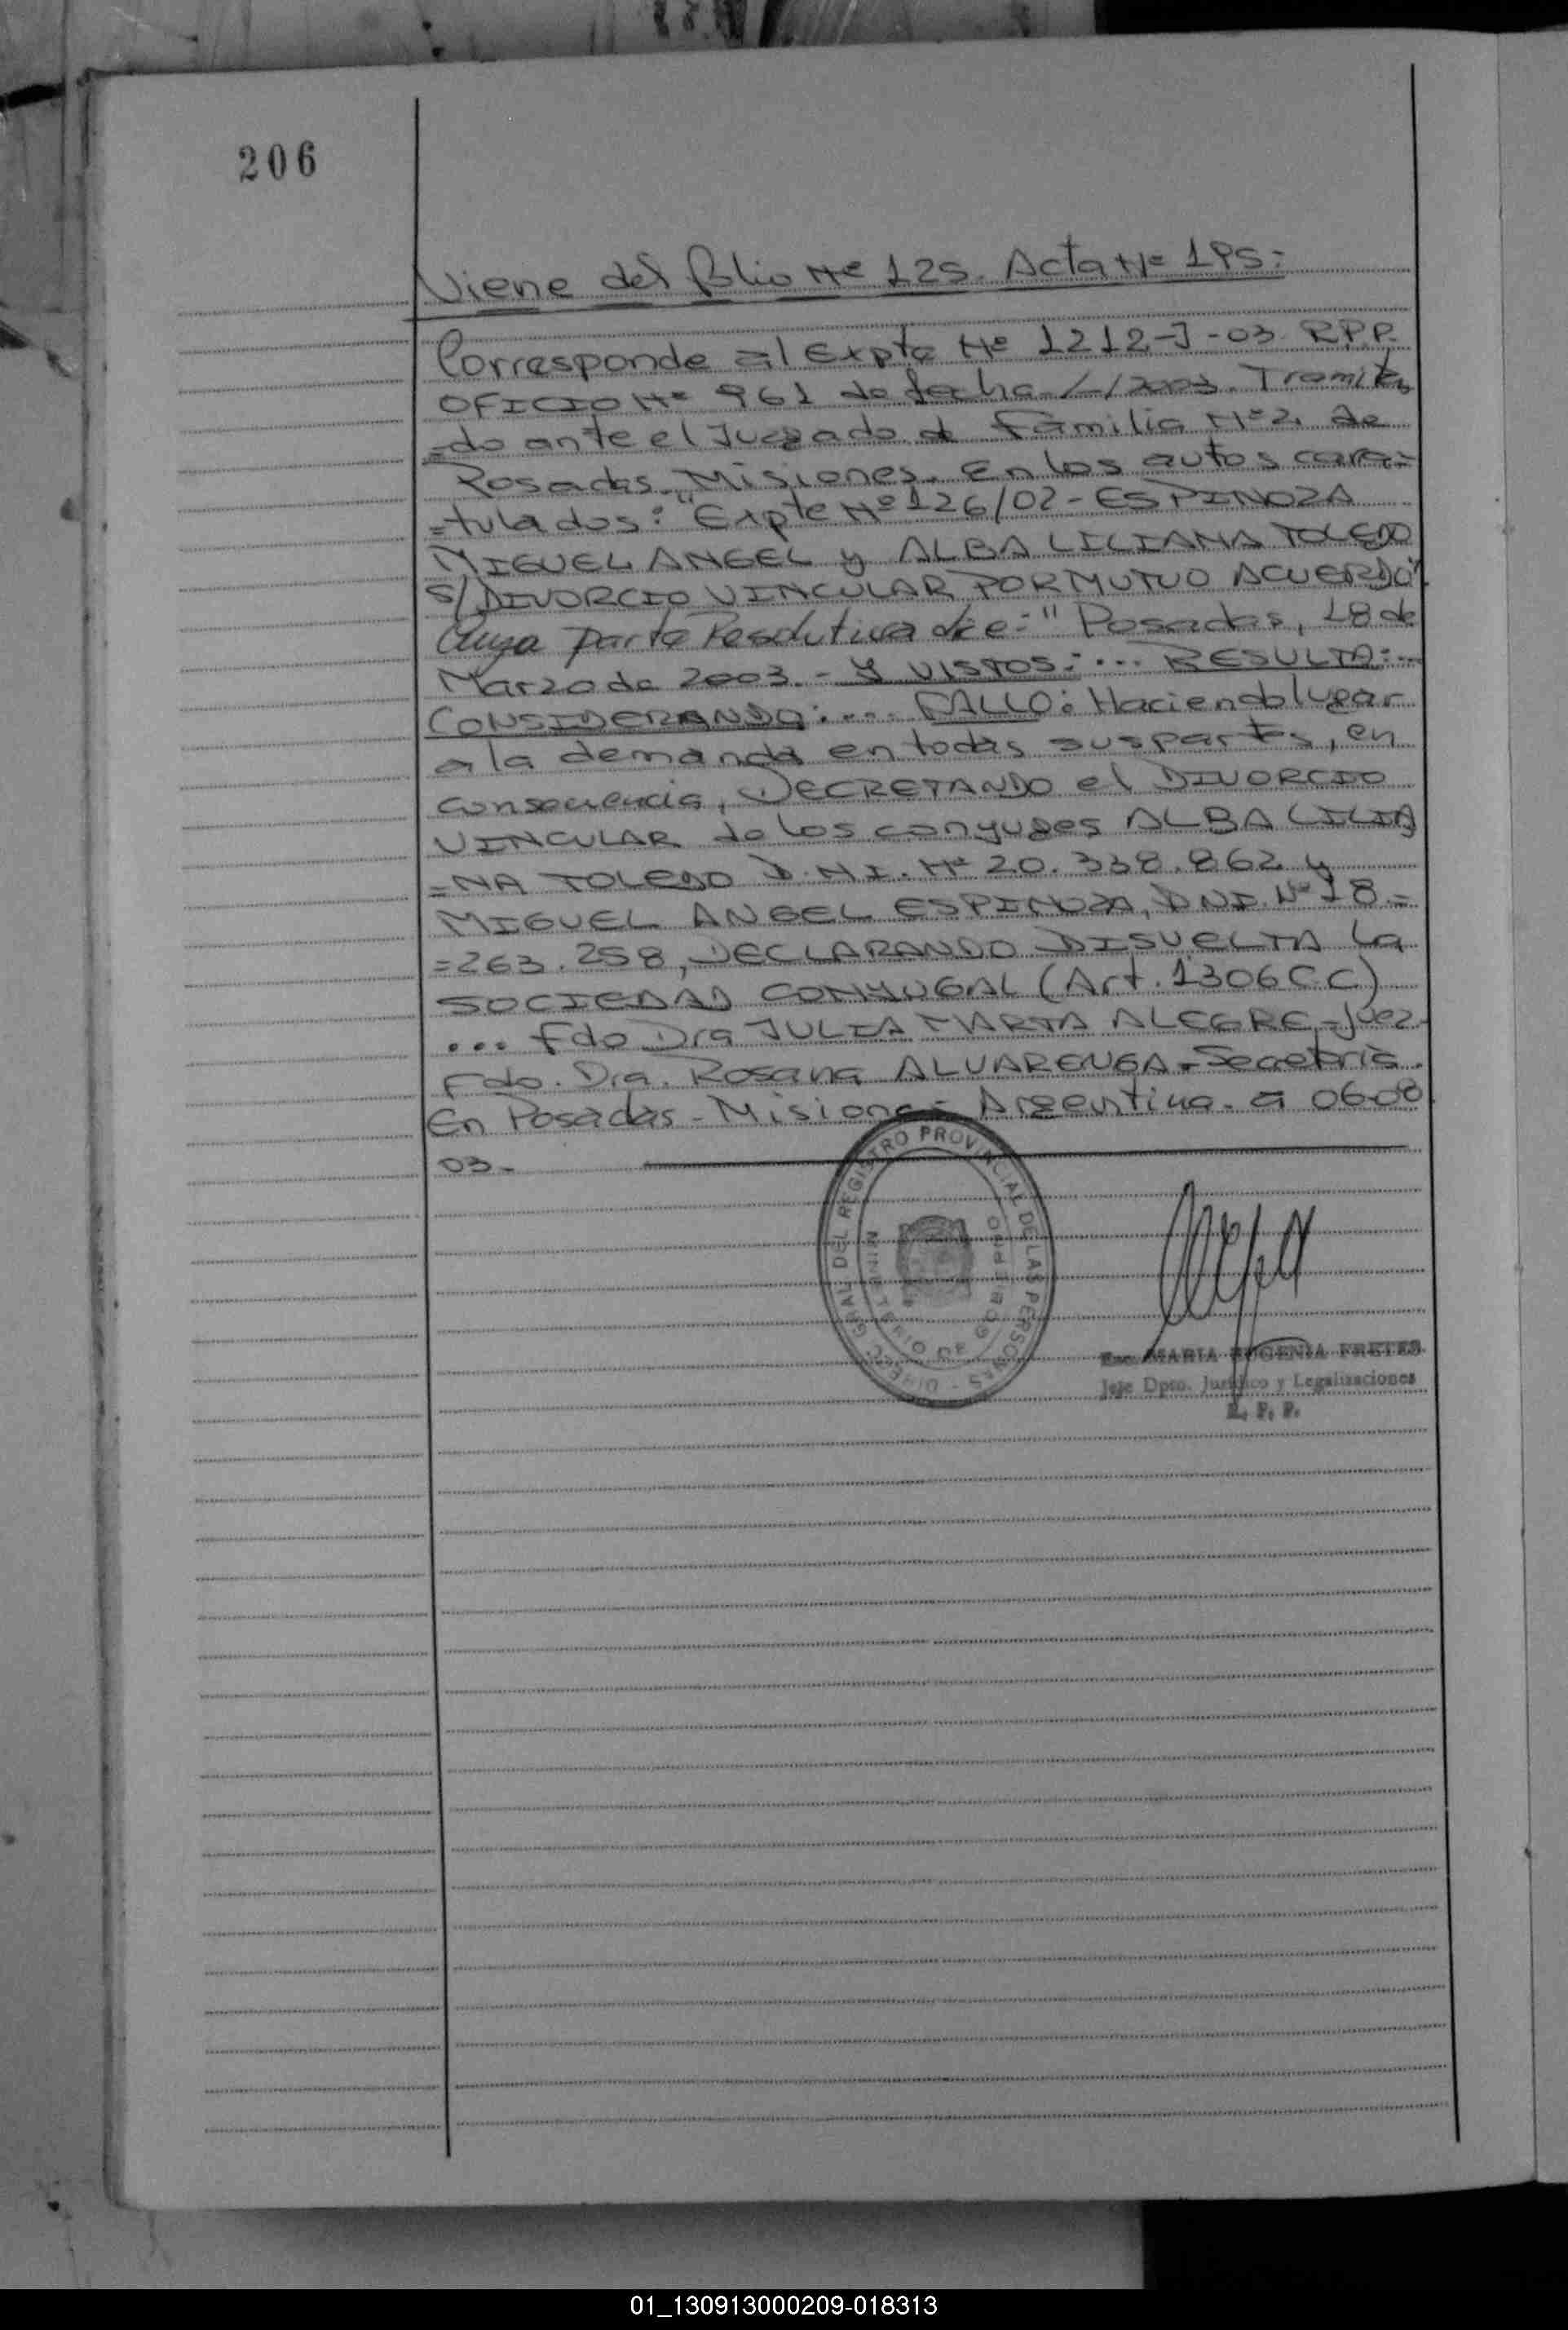 206
Viene del folio Nº 125. Acta Nº 195:
Corresponde al Expte Nº 1212-J-03 R.P.P.
OFICIO Nº 961 de fecha -/-/2003. Tramita
=do ante el Juzgado de Familia Nº 2, de
Posadas. Misiones. En los autos cara=
=tulados: "Expte Nº 126/02 - ESPINOZA
MIGUEL ANGEL y ALBA LILIANA TOLEDO
S/DIVORCIO VINCULAR POR MUTUO ACUERDO".
Cuya parte Resolutiva dice: "Posadas, 18 de
Marzo de 2003. - Y VISTOS: ... RESULTA: ...
CONSIDERANDO: ... FALLO: Haciendo lugar
a la demanda en todas sus partes, en
consecuencia, DECRETANDO el DIVORCIO
VINCULAR de los conyuges ALBA LILIA
=NA TOLEDO D.N.I. Nº 20.338.862 y
MIGUEL ANGEL ESPINOZA, DNI. Nº 18.=
=263.258, DECLARANDO DISUELTA la
SOCIEDAD CONYUGAL (Art. 1306 C.C)
... Fdo Dra JULIA MARTA ALEGRE - Juez.
Fdo. Dra. Rosana ALVARENGA - Secretaria.
En Posadas - Misiones - Argentina. a 06-08
03.-
DIREC. GRAL. DEL REGISTRO PROVINCIAL DE LAS PERSONAS -
MINISTERIO DE GOBIERNO
Esc. MARIA EUGENIA FRETES
Jefe Dpto. Jurídico y Legalizaciones
R. P. P.
01_130913000209-018313